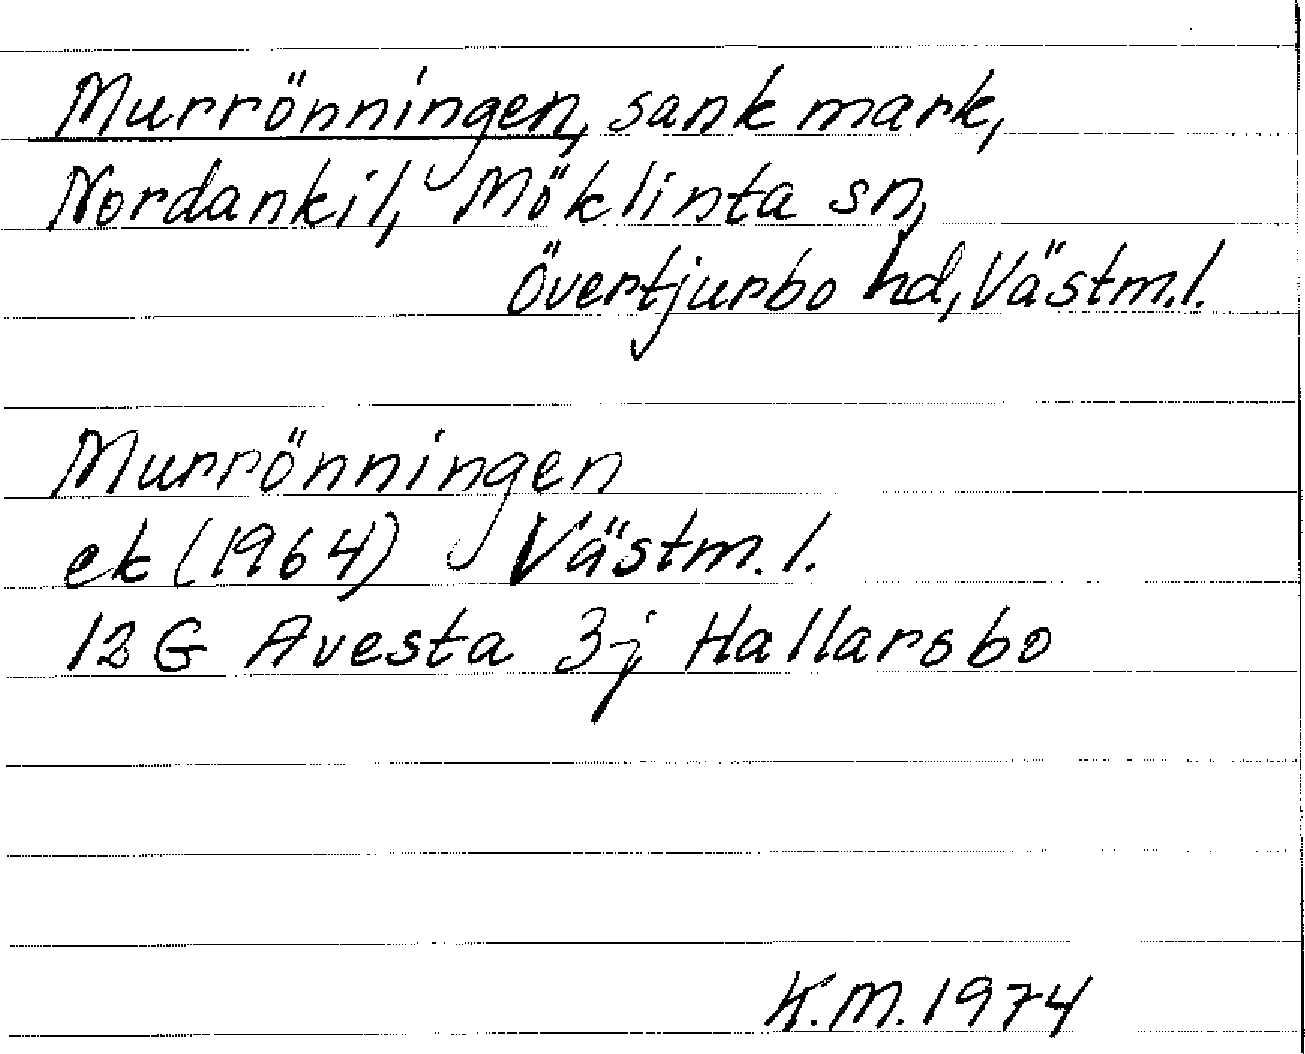 Murrönningen, sank mark,
Nordankil, Möklinta sn,
Övertjurbo hd, Västm.l.
Murrönningen
ek (1964) Västm.l.
12 G Avesta 3j Hallarsbo
K.M. 1974